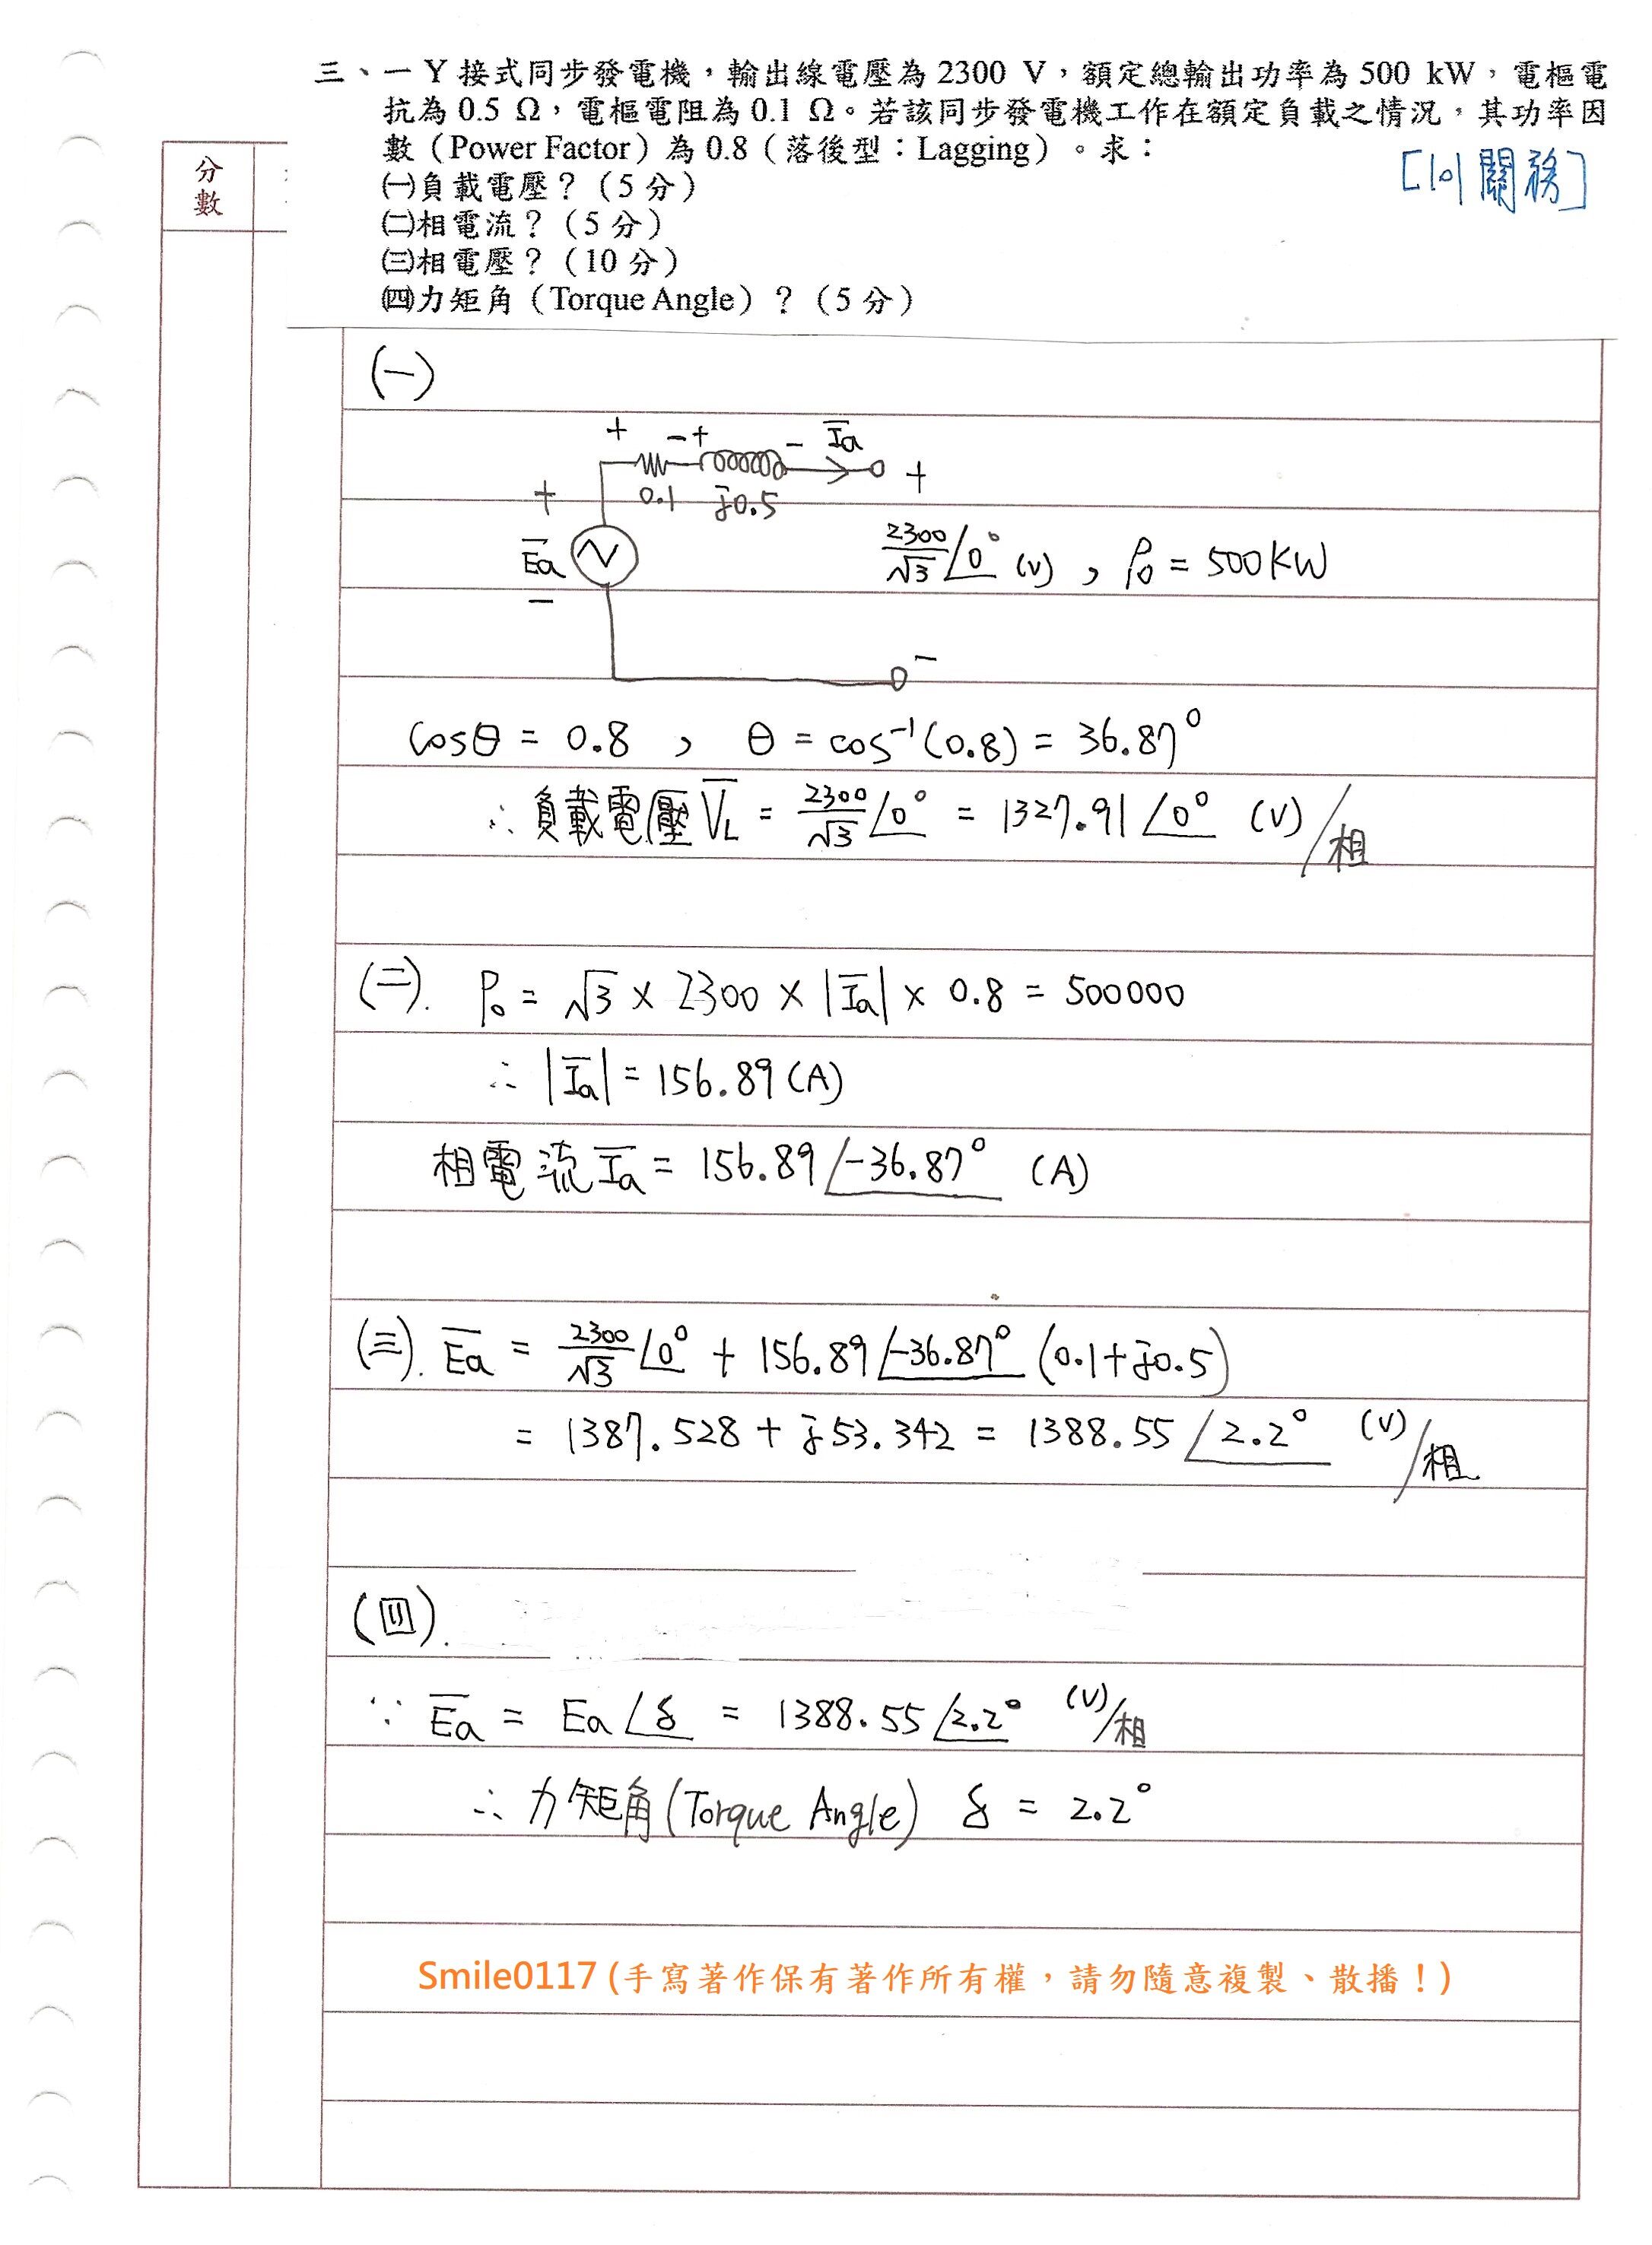 三、一 Y 接式同步發電機，輸出線電壓為 2300 V，額定總輸出功率為 500 kW，電樞電
抗為 0.5 Ω，電樞電阻為 0.1 Ω。若該同步發電機工作在額定負載之情況，其功率因
數（Power Factor）為 0.8（落後型：Lagging）。求：
㈠負載電壓？（5 分）
[101 關務]
㈡相電流？（5 分）
㈢相電壓？（10 分）
㈣力矩角（Torque Angle）？（5 分）
分數
(一)
+ - + - Ia +
0.1 j0.5
+ Ea -
2300/√3 ∠0° (V) , Po = 500KW
-
cosθ = 0.8 , θ = cos⁻¹(0.8) = 36.87°
∴ 負載電壓 V̅L = 2300/√3 ∠0° = 1327.91 ∠0° (V)/相
(二). Po = √3 × 2300 × |I̅a| × 0.8 = 500000
∴ |I̅a| = 156.89 (A)
相電流 I̅a = 156.89 ∠-36.87° (A)
(三). E̅a = 2300/√3 ∠0° + 156.89 ∠-36.87° (0.1+j0.5)
= 1387.528 + j53.342 = 1388.55 ∠2.2° (V)/相
(四).
∵ E̅a = Ea∠δ = 1388.55 ∠2.2° (V)/相
∴ 力矩角(Torque Angle) δ = 2.2°
Smile0117 (手寫著作保有著作所有權，請勿隨意複製、散播！)